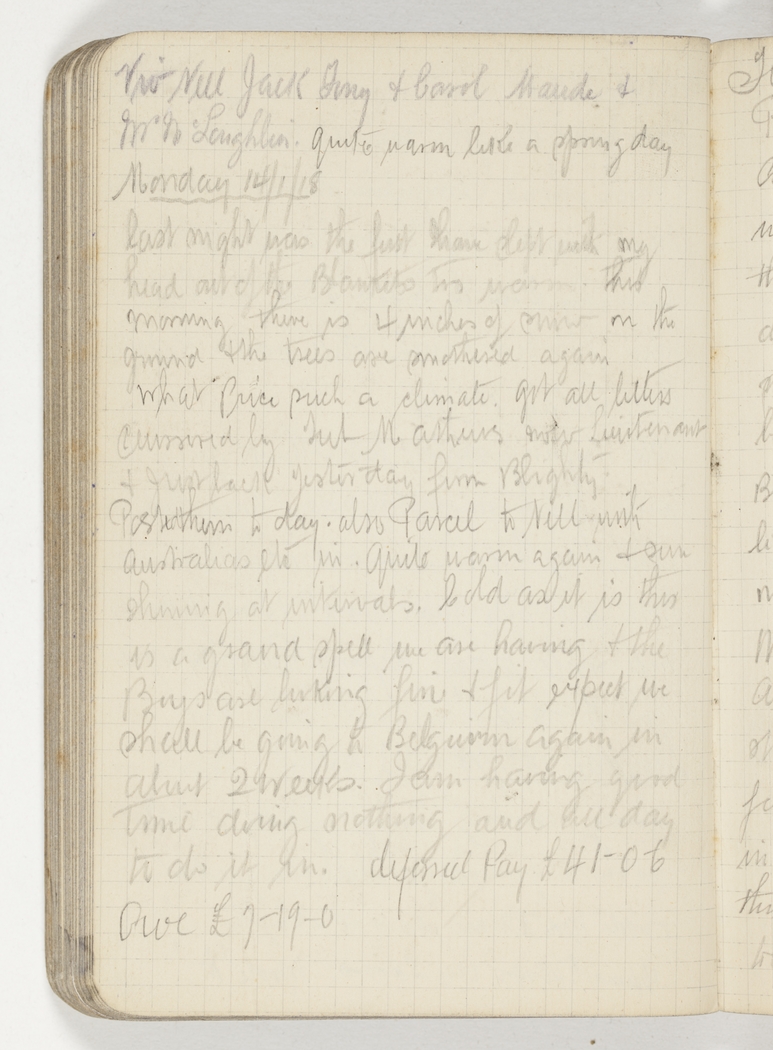 Viv Nell Jack Tiny & Carol Maude &
Mr McLoughlin. Quite warm like a spring day
Monday 14/1/18
last night was the first I have slept with my
head out of the Blankets tis warm. This
morning there is 4 inches of snow on the
ground & the trees are smothered again
What Price such a climate. got all letters
censored by Mathews now Lieutenant
& just back yesterday from Blighty
Posted them to day. also Parcel to Nell with
australias etc in. Quite warm again & sun
shining at intervals. Cold as it is this
is a grand spell we are having & the
Boys are looking fine & fit expect we
shall be going to Belguim again in
about 2 Weeks. I am having good
time doing nothing and all day
to do it in. deferred Pay £41-0 6
Owe £7-19-0